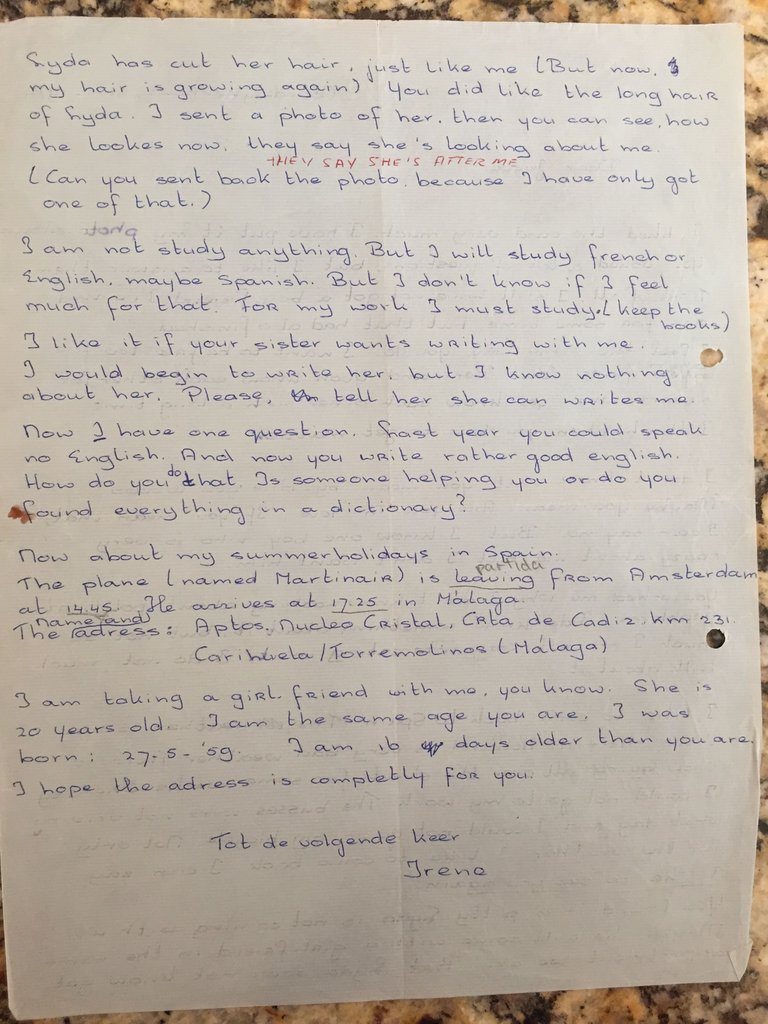 Lyda has cut her hair, just like me (But now,
my hair is growing again) You did like the long hair
of Lyda. I sent a photo of her, then you can see, how
she lookes now, they say she's looking about me.
THEY SAY SHE'S AFTER ME
(Can you sent back the photo, because I have only got
one of that.)
I am not study anything. But I will study french or
English, maybe Spanish. But I don't know if I feel
much for that. For my work I must study. (keep the
books)
I like it if your sister wants writing with me.
I would begin to write her, but I know nothing
about her. Please, tell her she can writes me.
Now I have one question. Last year you could speak
no English. And now you write rather good english.
How do you do that. Is someone helping you or do you
found everything in a dictionary?
Now about my summerholidays in Spain.
partida
The plane (named Martinair) is leaving from Amsterdam
at 14.45. He arrives at 17.25 in Málaga.
The name and adress: Aptos, Nucleo Cristal, Crta de Cadiz. km 231.
Carihuela/Torremolinos (Málaga)
I am taking a girl friend with me, you know. She is
20 years old. I am the same age you are. I was
born: 27-5-'59. I am 16 days older than you are.
I hope the adress is completly for you.
Tot de volgende keer
Irene